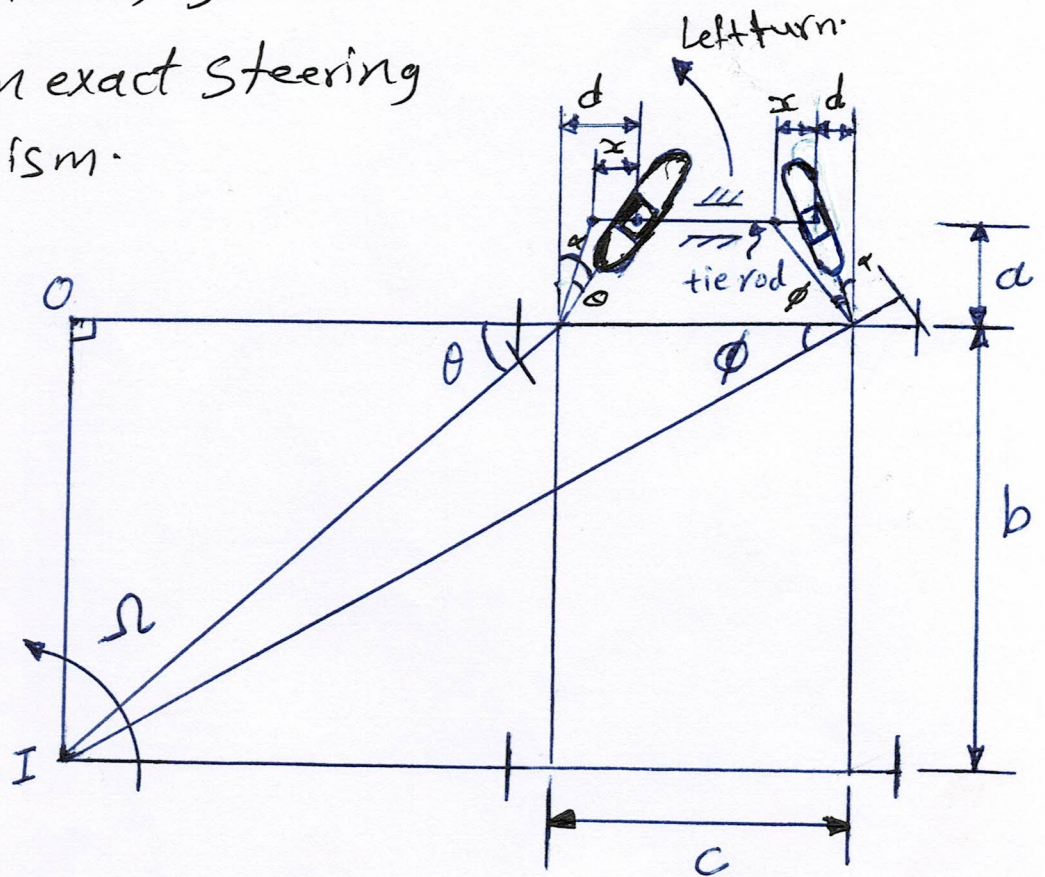 n exact steering
ism.
Left turn.
d
x
x d
α
θ
tie rod
φ
α
a
O
θ
φ
b
Ω
I
c